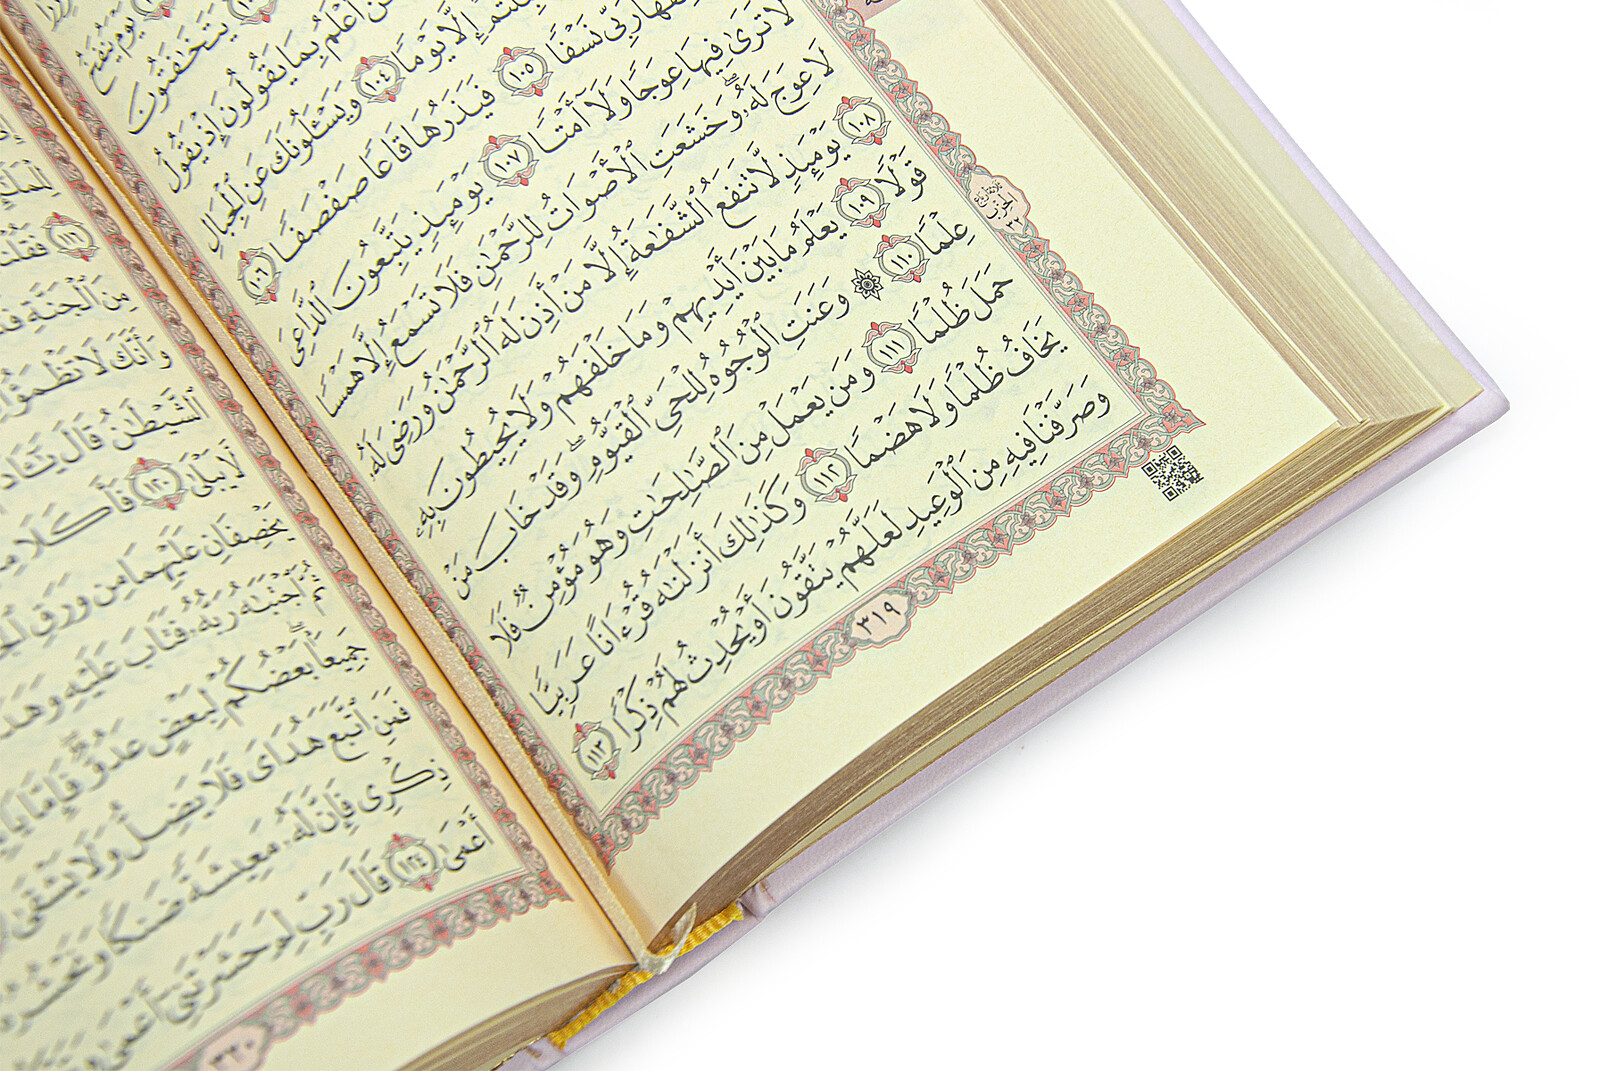 يَوْمَ يُنفَخُ
يَتَخَٰفَتُونَ
أَعْلَمُ بِمَا يَقُولُونَ إِذْ يَقُولُ
إِلَّا يَوْمًا ١٠٤ وَيَسْـَٔلُونَكَ عَنِ ٱلْجِبَالِ
رَبِّى نَسْفًا ١٠٥ فَيَذَرُهَا قَاعًا صَفْصَفًا ١٠٦
لَّا تَرَىٰ فِيهَا عِوَجًا وَلَآ أَمْتًا ١٠٧ يَوْمَئِذٍ يَتَّبِعُونَ ٱلدَّاعِىَ
لَا عِوَجَ لَهُۥ ۖ وَخَشَعَتِ ٱلْأَصْوَاتُ لِلرَّحْمَٰنِ فَلَا تَسْمَعُ إِلَّا هَمْسًا
١٠٨ يَوْمَئِذٍ لَّا تَنفَعُ ٱلشَّفَٰعَةُ إِلَّا مَنْ أَذِنَ لَهُ ٱلرَّحْمَٰنُ وَرَضِىَ لَهُۥ
قَوْلًا ١٠٩ يَعْلَمُ مَا بَيْنَ أَيْدِيهِمْ وَمَا خَلْفَهُمْ وَلَا يُحِيطُونَ بِهِۦ
عِلْمًا ١١٠ ۞ وَعَنَتِ ٱلْوُجُوهُ لِلْحَىِّ ٱلْقَيُّومِ ۖ وَقَدْ خَابَ مَنْ
حَمَلَ ظُلْمًا ١١١ وَمَن يَعْمَلْ مِنَ ٱلصَّٰلِحَٰتِ وَهُوَ مُؤْمِنٌ فَلَا
يَخَافُ ظُلْمًا وَلَا هَضْمًا ١١٢ وَكَذَٰلِكَ أَنزَلْنَٰهُ قُرْءَانًا عَرَبِيًّا
وَصَرَّفْنَا فِيهِ مِنَ ٱلْوَعِيدِ لَعَلَّهُمْ يَتَّقُونَ أَوْ يُحْدِثُ لَهُمْ ذِكْرًا ١١٣
الحزب
٣٢
٣١٩
١١٦ فَقُلْنَا
مِنَ ٱلْجَنَّةِ
وَأَنَّكَ لَا تَظْمَؤُا۟
ٱلشَّيْطَٰنُ قَالَ
لَّا يَبْلَىٰ ١٢٠ فَأَكَلَا
يَخْصِفَانِ عَلَيْهِمَا مِن وَرَقِ
ثُمَّ ٱجْتَبَٰهُ رَبُّهُۥ فَتَابَ عَلَيْهِ وَهَدَىٰ
جَمِيعًۢا ۖ بَعْضُكُمْ لِبَعْضٍ عَدُوٌّ ۖ فَإِمَّا
فَمَنِ ٱتَّبَعَ هُدَاىَ فَلَا يَضِلُّ وَلَا يَشْقَىٰ
ذِكْرِى فَإِنَّ لَهُۥ مَعِيشَةً ضَنكًا وَنَحْشُرُهُۥ
أَعْمَىٰ ١٢٤ قَالَ رَبِّ لِمَ حَشَرْتَنِىٓ أَعْمَىٰ
٣٢٠